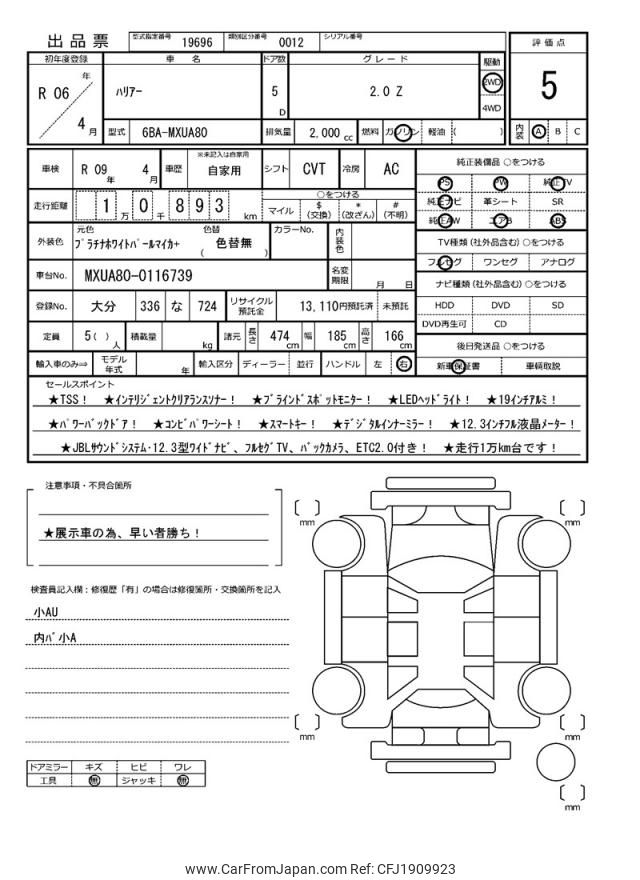 出品票 型式指定番号 19696 類別区分番号 0012 シリアル番号
評価点
5
内装 A B C
初年度登録 車名 ドア数 グレード 駆動
R 06 年 4 月 ハリアー 5 D 2.0 Z 2WD 4WD
型式 6BA-MXUA80 排気量 2,000 cc 燃料 ガソリン 軽油 ( )
車検 R 09 年 4 月 車歴 ※未記入は自家用 自家用 シフト CVT 冷房 AC
走行距離 1 万 0 千 8 9 3 km ○をつける マイル $ (交換) * (改ざん) # (不明)
外装色 元色 プラチナホワイトパールマイカ+ 色替 ( 色替無 ) カラーNo. 内装色
車台No. MXUA80-0116739 名変期限 月 日
登録No. 大分 336 な 724 リサイクル預託金 13,110円預託済 未預託
定員 5( ) 人 積載量 kg 諸元 長さ 474 cm 幅 185 cm 高さ 166 cm
輸入車のみ⇒ モデル年式 年 輸入区分 ディーラー 並行 ハンドル 左 右
純正装備品 ○をつける
PS PW 純正TV
純正ナビ 革シート SR
純正AW エアB ABS
TV種類 (社外品含む) ○をつける
フルセグ ワンセグ アナログ
ナビ種類 (社外品含む) ○をつける
HDD DVD SD
DVD再生可 CD
後日発送品 ○をつける
新車保証書 車輌取説
セールスポイント
★TSS! ★インテリジェントクリアランスソナー! ★ブラインドスポットモニター! ★LEDヘッドライト! ★19インチアルミ!
★パワーバックドア! ★コンビパワーシート! ★スマートキー! ★デジタルインナーミラー! ★12.3インチフル液晶メーター!
★JBLサウンドシステム・12.3型ワイドナビ、フルセグTV、バックカメラ、ETC2.0付き! ★走行1万km台です!
注意事項・不具合箇所
★展示車の為、早い者勝ち!
検査員記入欄:修復歴「有」の場合は修復箇所・交換箇所を記入
小AU
内バ小A
ドアミラー キズ ヒビ ワレ
工具 無 ジャッキ 無
mm
mm
mm
mm
mm
www.CarFromJapan.com Ref: CFJ1909923